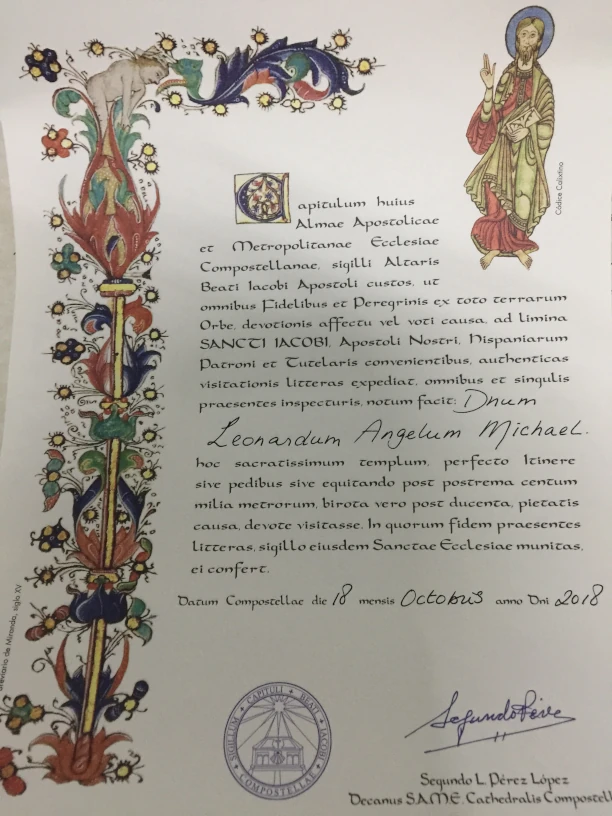 Códice Calixtino
Capitulum huius
Almae Apostolicae
et Metropolitanae Ecclesiae
Compostellanae, sigilli Altaris
Beati Iacobi Apostoli custos, ut
omnibus Fidelibus et Peregrinis ex toto terrarum
Orbe, devotionis affectu vel voti causa, ad limina
SANCTI IACOBI, Apostoli Nostri, Hispaniarum
Patroni et Tutelaris convenientibus, authenticas
visitationis litteras expediat, omnibus et singulis
praesentes inspecturis, notum facit: Dnum
Leonardum Angelum Michael.
hoc sacratissimum templum, perfecto Itinere
sive pedibus sive equitando post postrema centum
milia metrorum, birota vero post ducenta, pietatis
causa, devote visitasse. In quorum fidem praesentes
litteras, sigillo eiusdem Sanctae Ecclesiae munitas,
ei confert.
Datum Compostellae die 18 mensis Octobris anno Dni 2018
Breviario de Miranda, siglo XV
SIGILLUM CAPITULI BEATI IACOBI COMPOSTELLAE
Segundo Pérez
Segundo L. Pérez López
Decanus S.A.M.E. Cathedralis Compostell